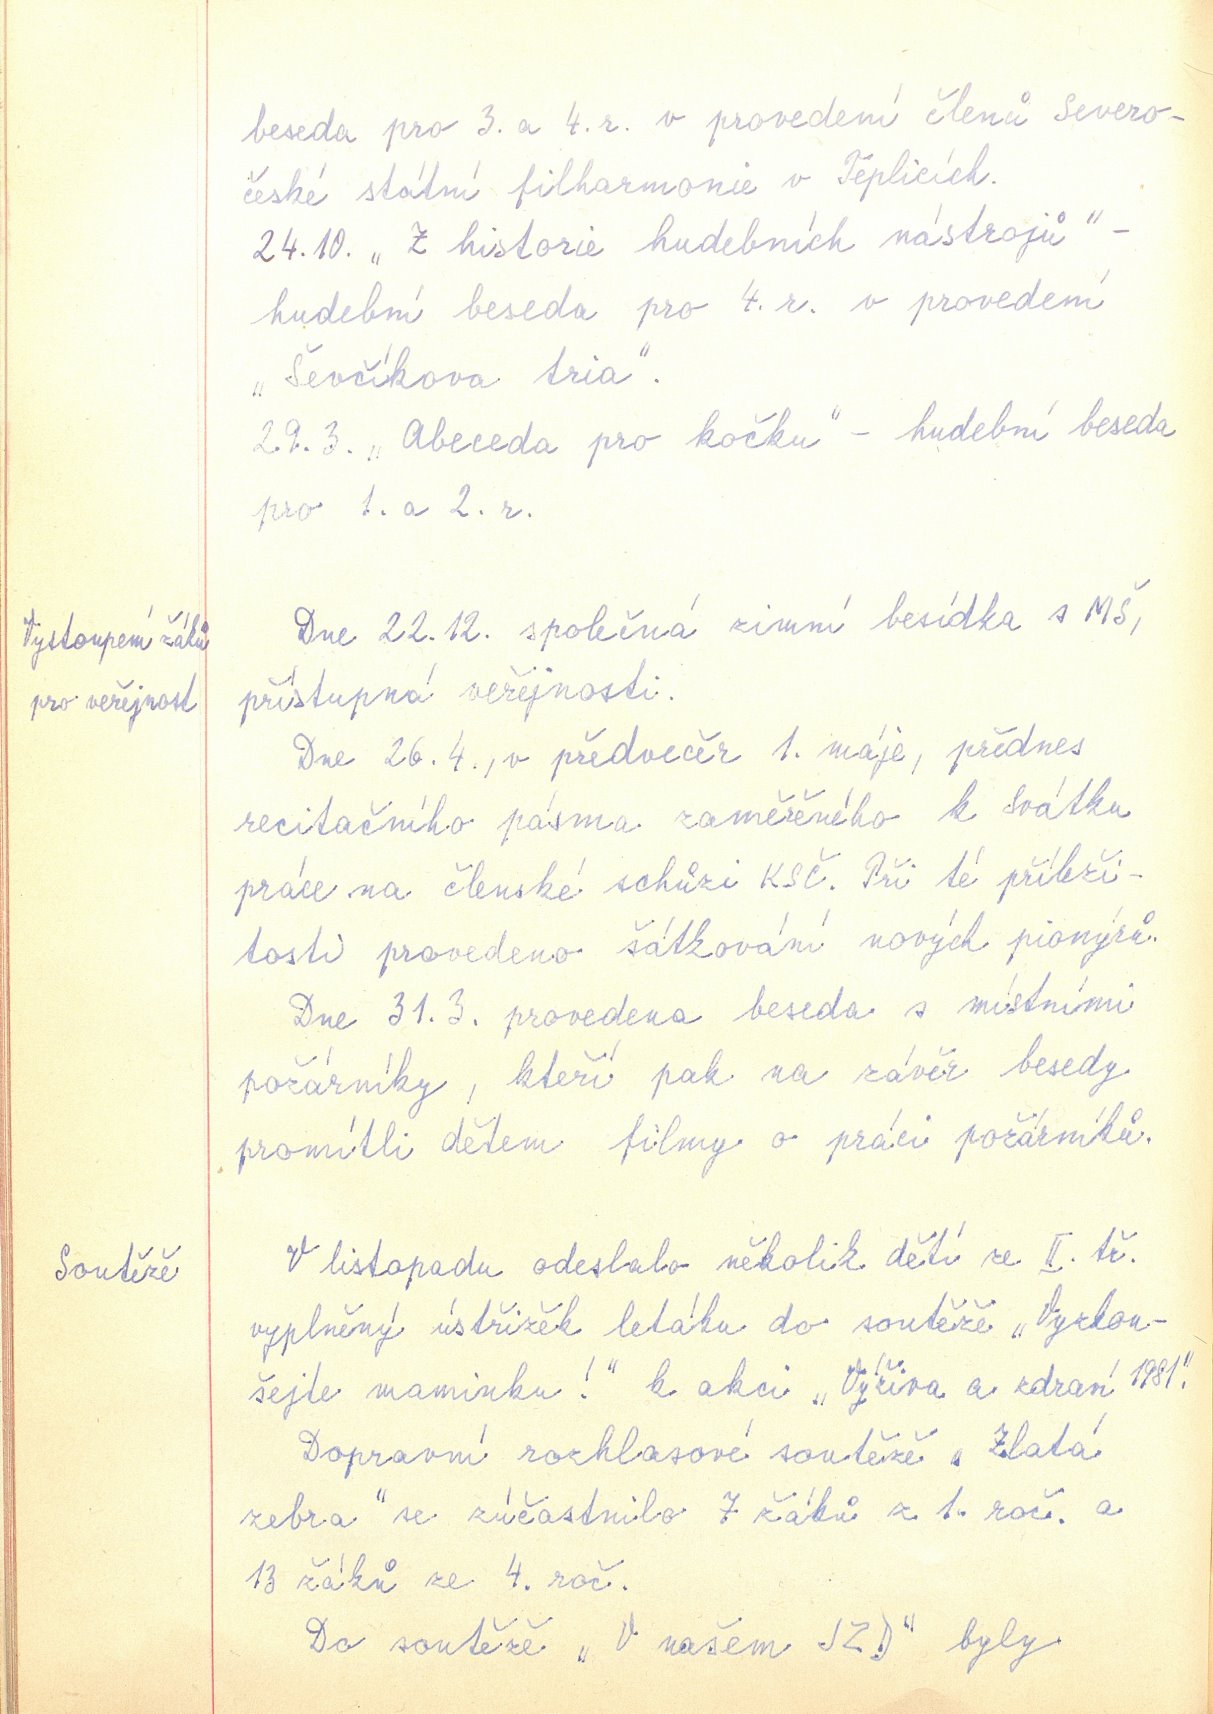 beseda pro 3. a 4. r. v provedení členů Severo-
české státní filharmonie v Teplicích.
24.10. „Z historie hudebních nástrojů" -
hudební beseda pro 4. r. v provedení
„Ševčíkova tria".
29.3. „Abeceda pro kočku" - hudební beseda
pro 1. a 2. r.
Vystoupení žáků
pro veřejnost
Dne 22.12. společná zimní besídka s MŠ,
přístupná veřejnosti.
Dne 26.4., v předvečer 1. máje, přednes
recitačního pásma zaměřeného k Svátku
práce na členské schůzi KSČ. Při té příleži-
tosti provedeno šátkování nových pionýrů.
Dne 31.3. provedena beseda s místními
požárníky, kteří pak na závěr besedy
promítli dětem filmy o práci požárníků.
Soutěže
V listopadu odeslalo několik dětí ze II. tř.
vyplněný ústřižek letáku do soutěže „Vyzkou-
šejte maminku!" k akci „Výživa a zdraví 1981".
Dopravní rozhlasové soutěže „Zlatá
zebra" se zúčastnilo 7 žáků z 1. roč. a
13 žáků ze 4. roč.
Do soutěže „V našem JZD" byly